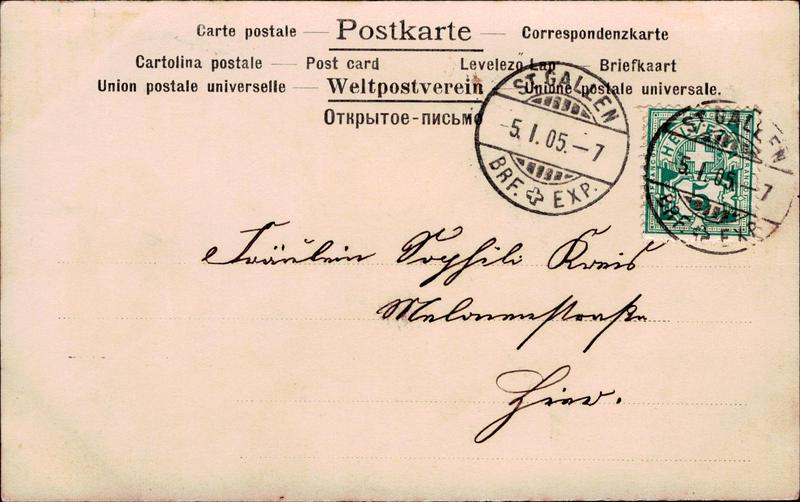 Carte postale — Postkarte — Correspondenzkarte
Cartolina postale — Post card Levelezö-Lap — Briefkaart
Union postale universelle — Weltpostverein — Unione postale universale.
Открытое-письмо
ST. GALLEN
5. I. 05. – 7
BRF. EXP.
ST. GALLEN
5. I. 05. – 7
BRF. EXP.
HELVETIA
5
Fräulein Sophie Kreis
Hier.